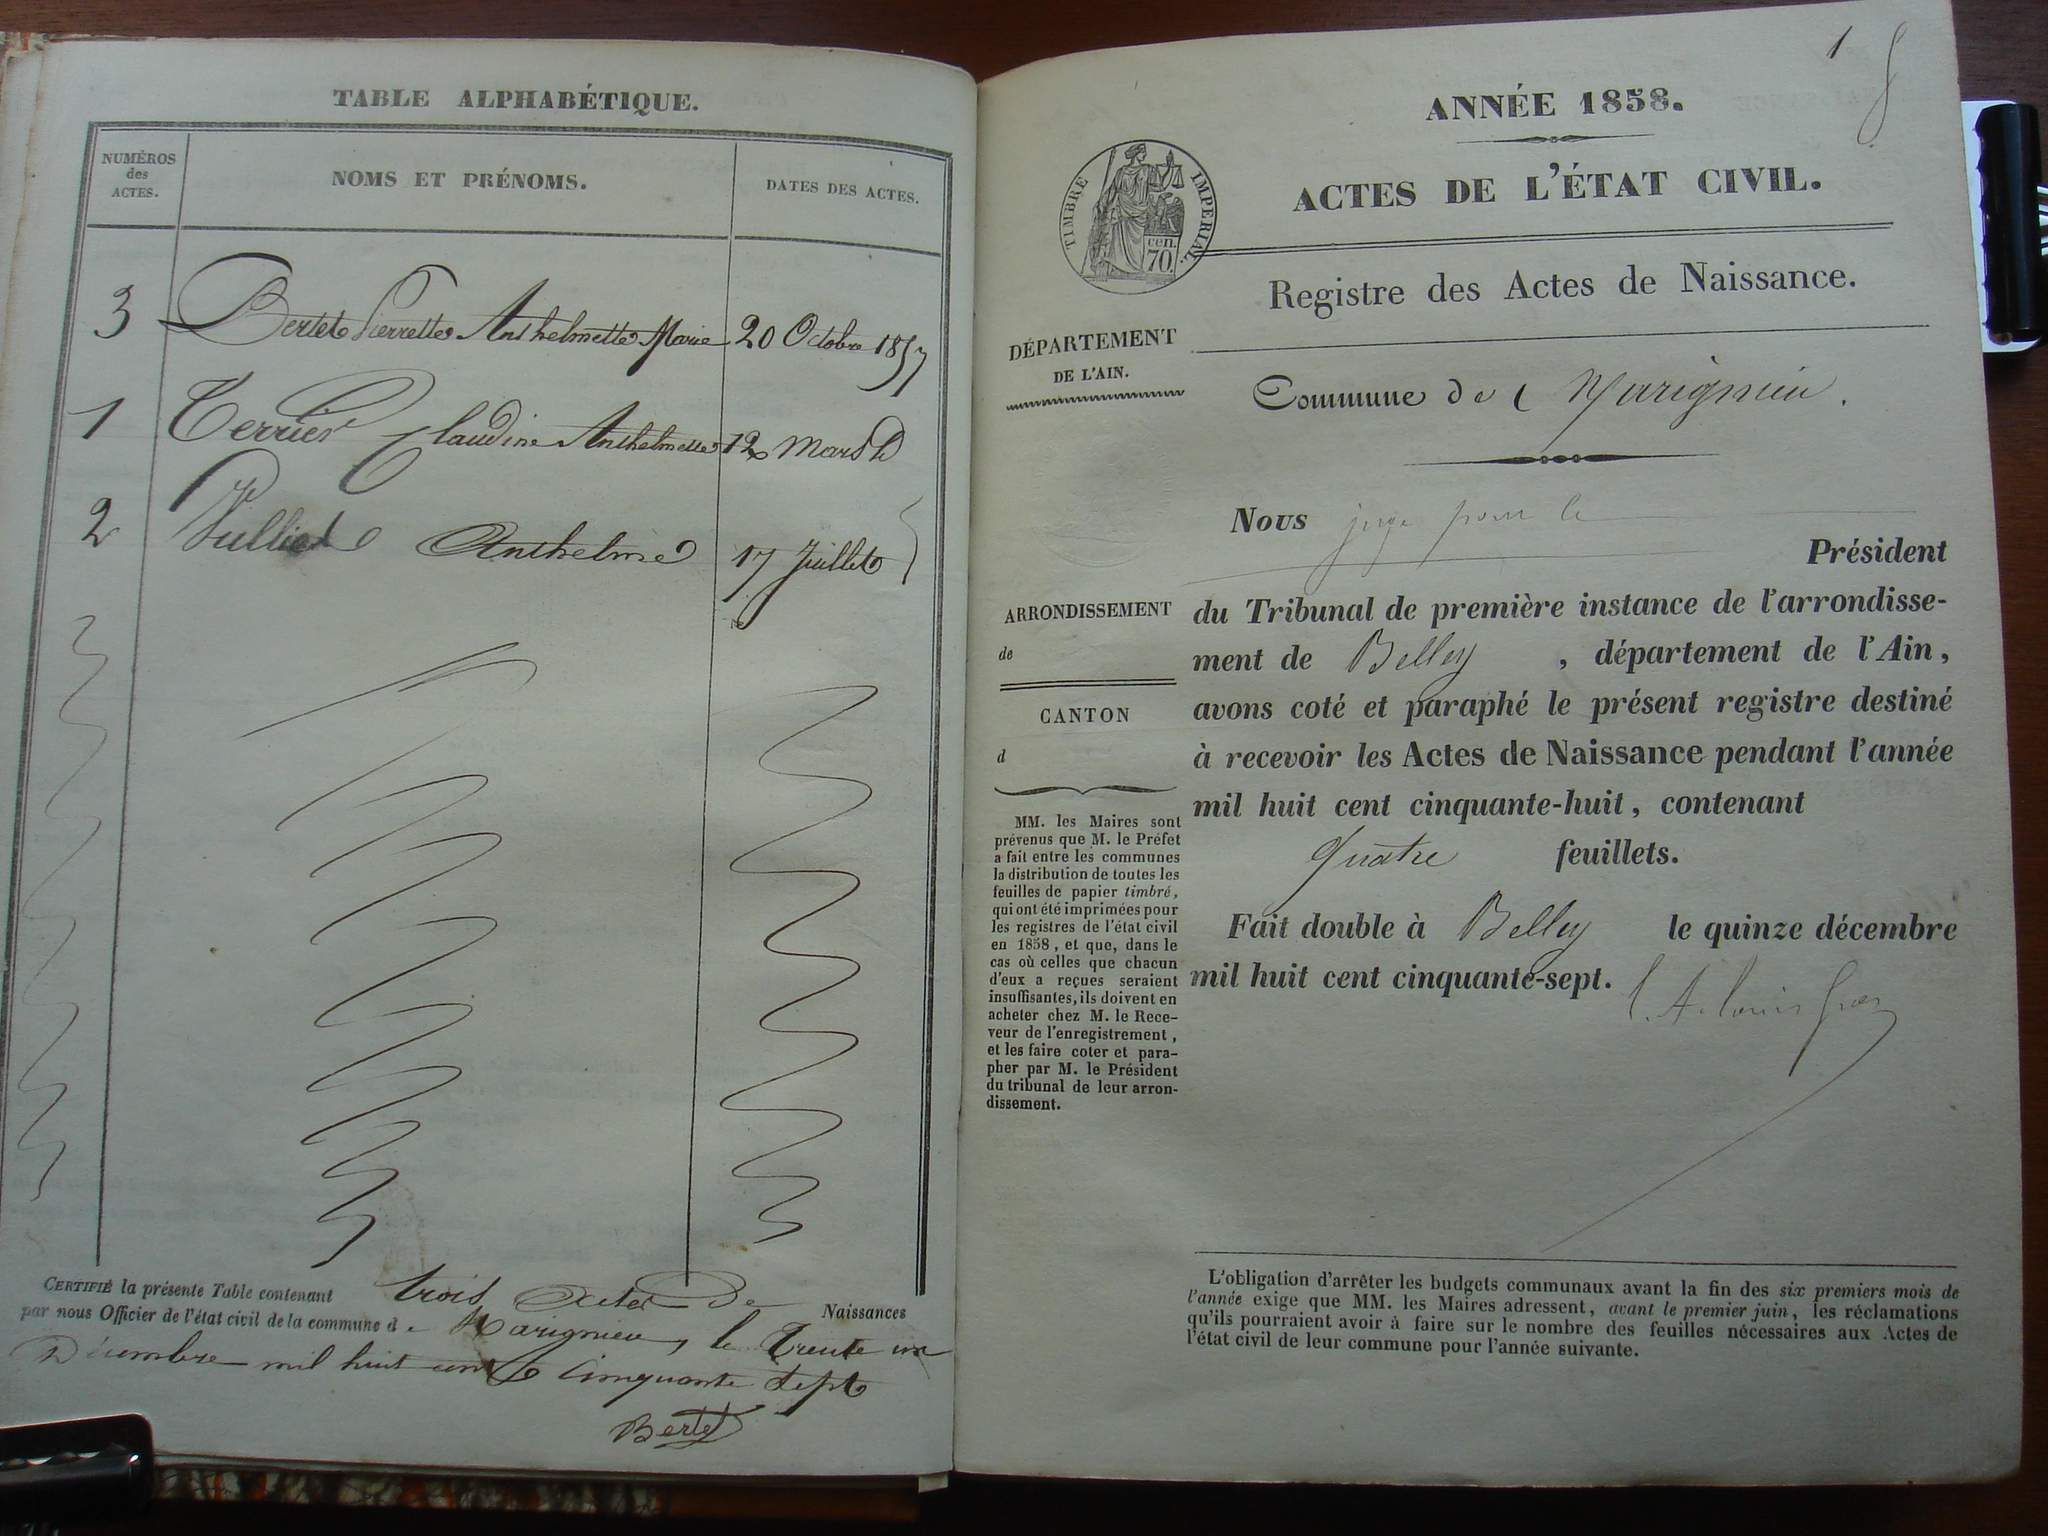 TABLE ALPHABÉTIQUE.
NUMÉROS
des
ACTES.
NOMS ET PRÉNOMS.
DATES DES ACTES.
3 Bertet Pierrette Anthelmette Marie 20 Octobre 1857
1 Terrier Claudine Anthelmette 12 Mars d
2 Vulliod Anthelme 17 Juillet
CERTIFIÉ la présente Table contenant trois actes de Naissances
par nous Officier de l'état civil de la commune de Marignieu, le trente un
Décembre mil huit cent cinquante sept
Bertet
1
ANNÉE 1858.
ACTES DE L'ÉTAT CIVIL.
TIMBRE IMPERIAL.
cen.
70.
Registre des Actes de Naissance.
DÉPARTEMENT
DE L'AIN.
Commune de Marignieu.
Nous juge pour le
Président
du Tribunal de première instance de l'arrondisse-
ment de Belley, département de l'Ain,
avons coté et paraphé le présent registre destiné
à recevoir les Actes de Naissance pendant l'année
mil huit cent cinquante-huit, contenant
Quatre feuillets.
Fait double à Belley le quinze décembre
mil huit cent cinquante-sept.
ARRONDISSEMENT
de
CANTON
d
MM. les Maires sont
prévenus que M. le Préfet
a fait entre les communes
la distribution de toutes les
feuilles de papier timbré,
qui ont été imprimées pour
les registres de l'état civil
en 1858, et que, dans le
cas où celles que chacun
d'eux a reçues seraient
insuffisantes, ils doivent en
acheter chez M. le Rece-
veur de l'enregistrement,
et les faire coter et para-
pher par M. le Président
du tribunal de leur arron-
dissement.
L'obligation d'arrêter les budgets communaux avant la fin des six premiers mois de
l'année exige que MM. les Maires adressent, avant le premier juin, les réclamations
qu'ils pourraient avoir à faire sur le nombre des feuilles nécessaires aux Actes de
l'état civil de leur commune pour l'année suivante.